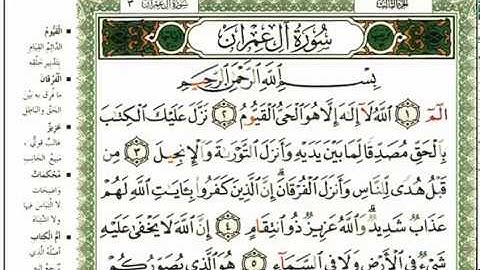 سُورَةُ آلِ عِمْرَان ٣
الجزء الثالث
سُورَةُ آلِ عِمْرَان
بِسْمِ ٱللَّهِ ٱلرَّحْمَٰنِ ٱلرَّحِيمِ
الٓمٓ ١ ٱللَّهُ لَآ إِلَٰهَ إِلَّا هُوَ ٱلْحَىُّ ٱلْقَيُّومُ ٢ نَزَّلَ عَلَيْكَ ٱلْكِتَٰبَ
بِٱلْحَقِّ مُصَدِّقًا لِّمَا بَيْنَ يَدَيْهِ وَأَنزَلَ ٱلتَّوْرَىٰةَ وَٱلْإِنجِيلَ ٣ مِن
قَبْلُ هُدًى لِّلنَّاسِ وَأَنزَلَ ٱلْفُرْقَانَ ۗ إِنَّ ٱلَّذِينَ كَفَرُوا۟ بِـَٔايَٰتِ ٱللَّهِ لَهُمْ
عَذَابٌ شَدِيدٌ ۗ وَٱللَّهُ عَزِيزٌ ذُو ٱنتِقَامٍ ٤ إِنَّ ٱللَّهَ لَا يَخْفَىٰ عَلَيْهِ
شَىْءٌ فِى ٱلْأَرْضِ وَلَا فِى ٱلسَّمَآءِ ٥ هُوَ ٱلَّذِى يُصَوِّرُكُمْ
القَيُّومُ
الدَّائِمُ القِيَامِ
بِتَدْبِيرِ خَلْقِهِ
الفُرْقَانَ
مَا فُرِقَ بِهِ بَيْنَ
الحَقِّ وَالبَاطِلِ
عَزِيزٌ
غَالِبٌ قَوِيٌّ
مَنِيعُ الجَانِبِ
مُحْكَمَاتٌ
وَاضِحَاتٌ
لَا الْتِبَاسَ فِيهَا
وَلَا اشْتِبَاهَ
أُمُّ الكِتَابِ
أَصْلُهُ الَّذِي